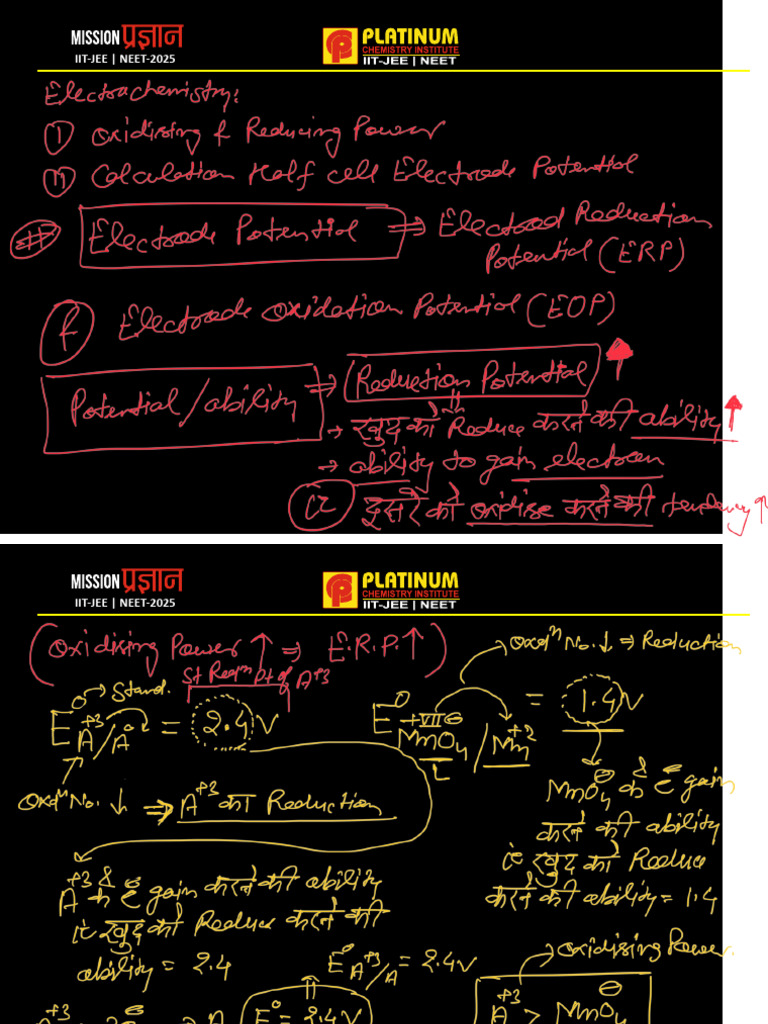 MISSION प्रज्ञान
IIT-JEE | NEET-2025
PLATINUM
CHEMISTRY INSTITUTE
IIT-JEE | NEET
Electrochemistry:
(I) Oxidising & Reducing Power
(II) Calculation Half cell Electrode Potential
# Electrode Potential ⇒ Electrod Reduction
Potential (ERP)
& Electrode Oxidation Potential (EOP)
Potential/ability ⇒ Reduction Potential ↑
→ खुद को Reduce करने की ability ↑
→ ability to gain electron
ie दूसरे को oxidise करने की tendency ↑
MISSION प्रज्ञान
IIT-JEE | NEET-2025
PLATINUM
CHEMISTRY INSTITUTE
IIT-JEE | NEET
(Oxidising Power ↑ ⇒ E.R.P. ↑)
Oxdⁿ No. ↓ ⇒ Reduction
St Redⁿ Pt of A⁺³
→ Stand.
E⁰ A⁺³/A⁰ = 2.4V
E⁰ +VII MnO₄⊖/Mn⁺² = 1.4V
Oxdⁿ No. ↓ ⇒ A⁺³ का Reduction
MnO₄⊖ के & e⊖ gain
करने की ability
ie खुद को Reduce
करने की ability = 1.4
A⁺³ के & e⊖ gain करने की ability
ie खुद को Reduce करने की
ability = 2.4
E⁰ A⁺³/A = 2.4V
→ Oxidising Power.
E⁰ = 2.4V
A⁺³ > MnO₄⊖